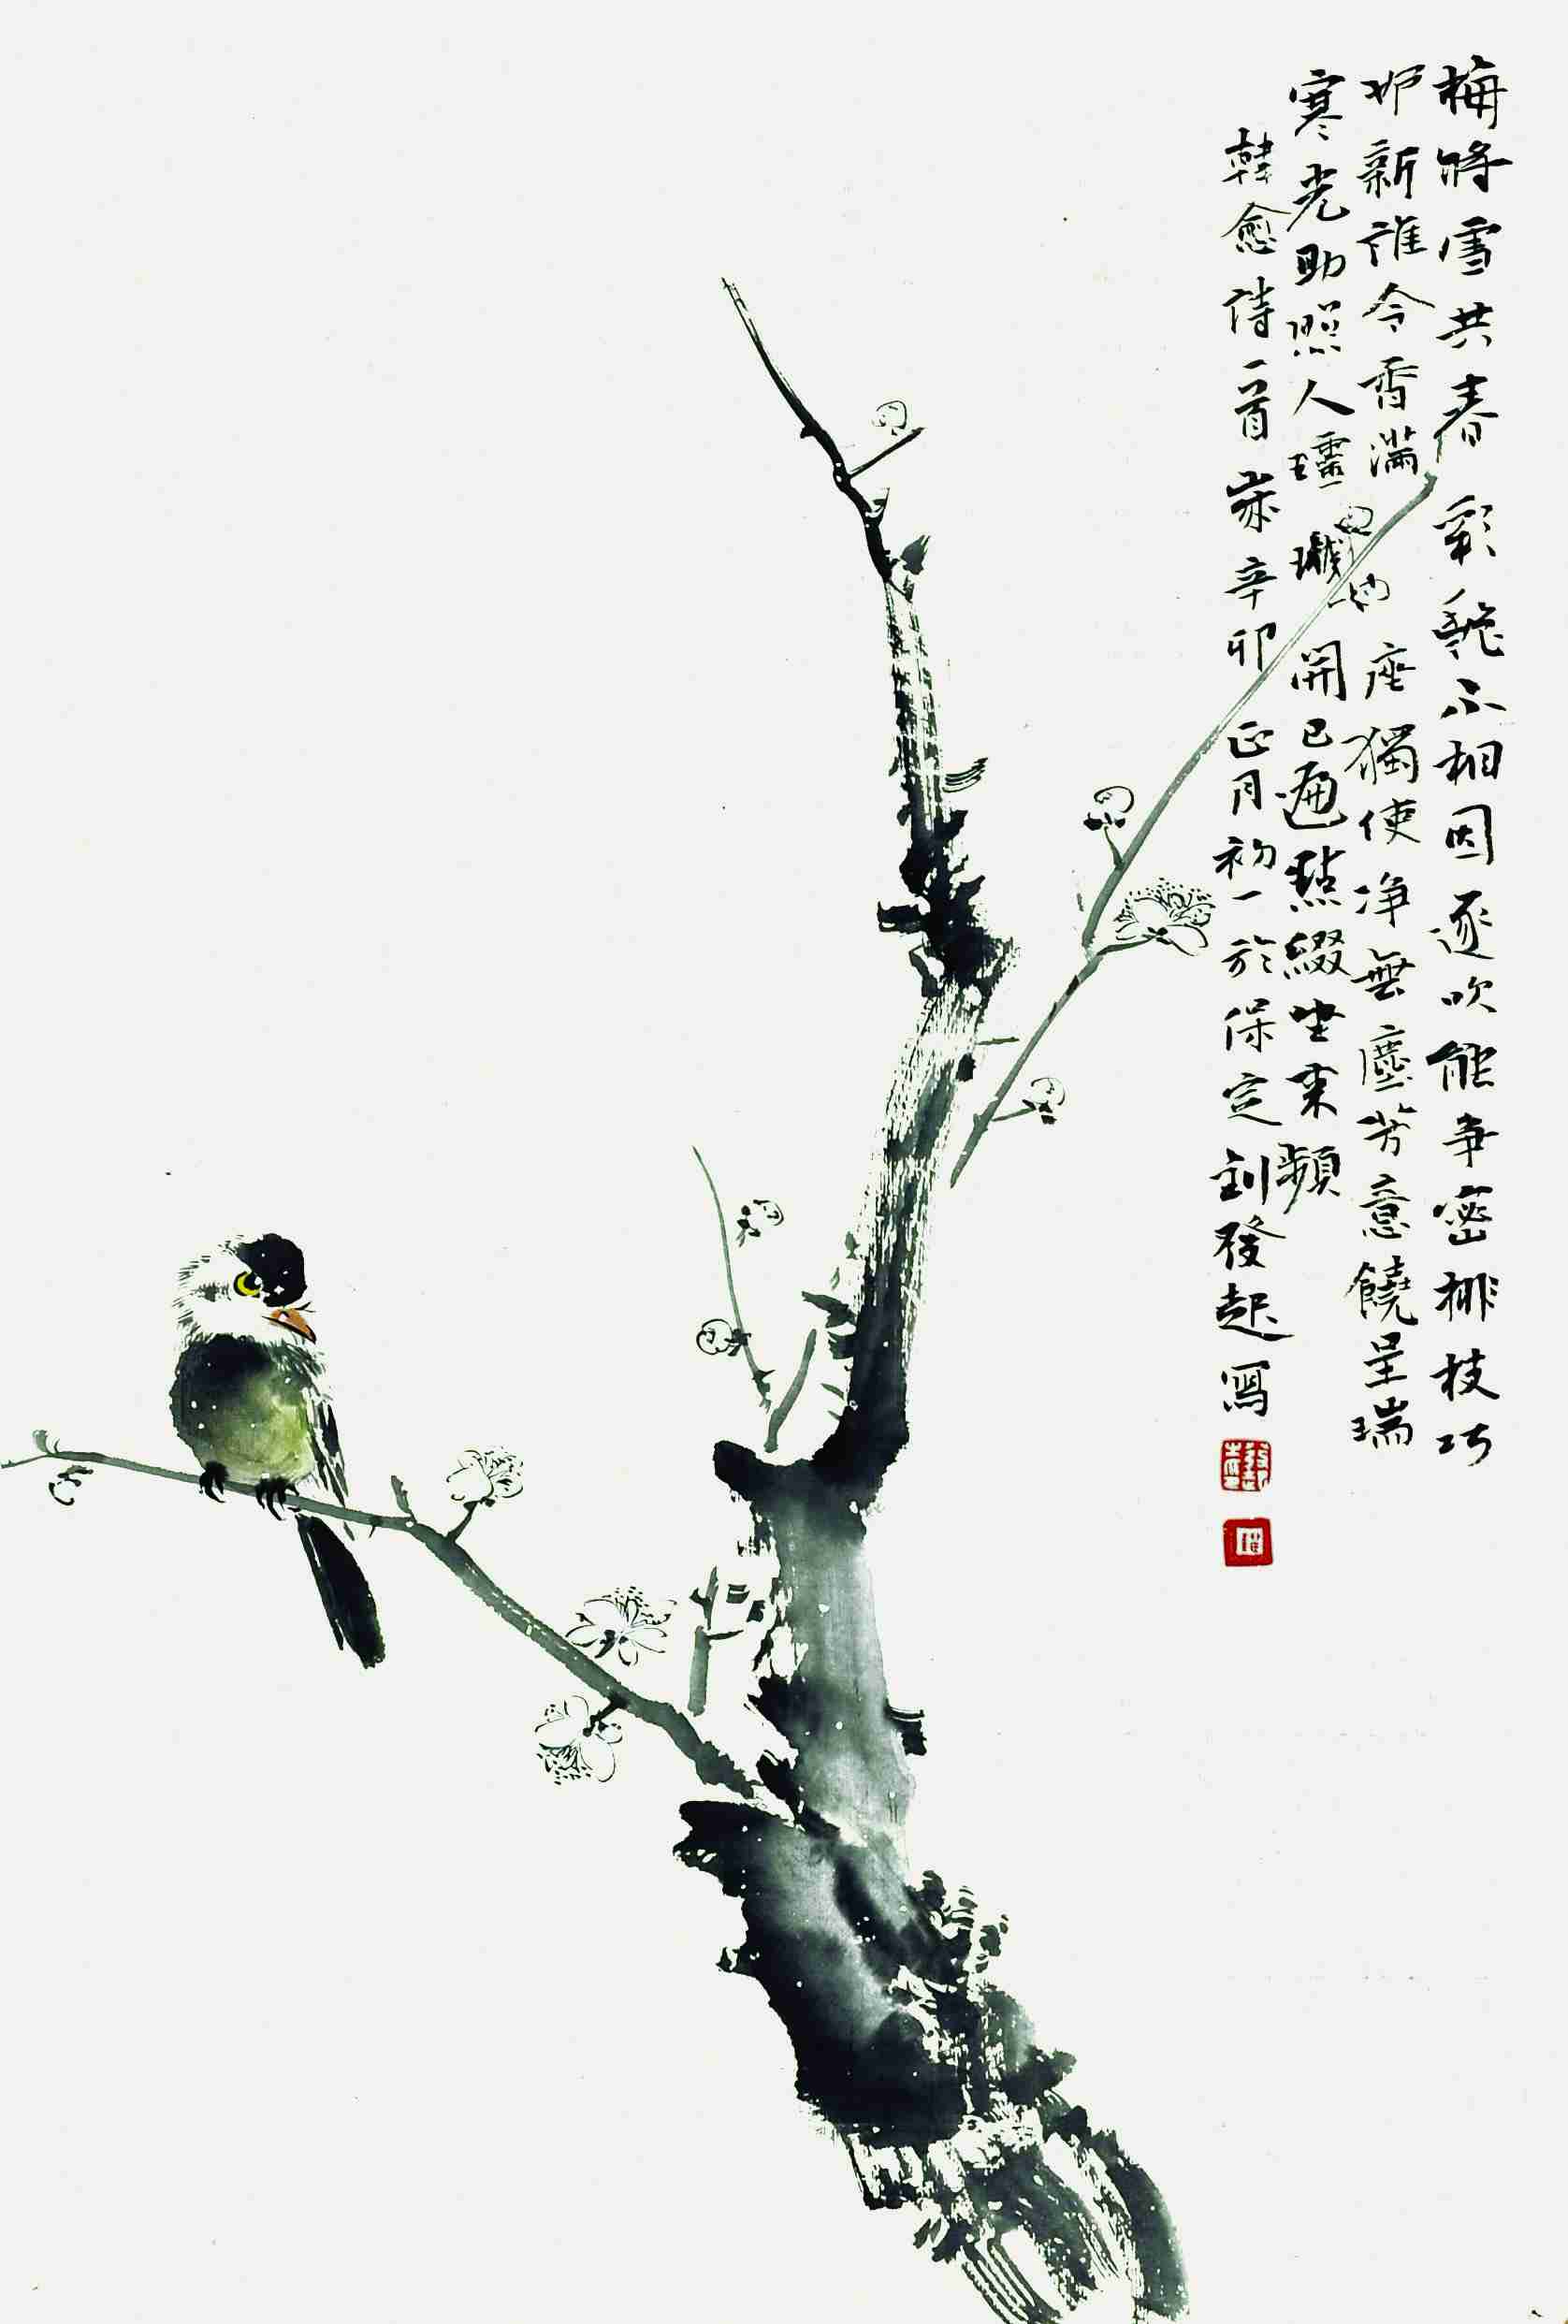 梅將雪共春彩艷不相因逐吹能爭密排枝巧
妒新誰令香滿座獨使净無塵芳意饒呈瑞
寒光助照人玲瓏開已遍點綴坐來頻
韓愈詩一首歲辛卯正月初一於保定劉發起寫